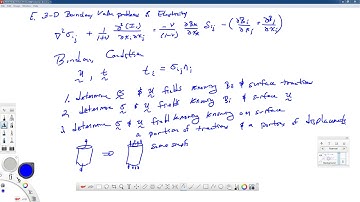 E. 3-D Boundary Value problems & Elasticity
∇²σij + 1/(1+ν) ∂²(I1)/∂xi∂xj = -ν/(1-ν) ∂Bk/∂xk δij - (∂Bi/∂xj + ∂Bj/∂xi)
Boundary Condition
u, t ti = σij nj
1. determine σ & u fields knowing Bi & surface tractions
2. determine σ & u fields knowing Bi & surface u
3. determine σ & u field knowing on surface
a portion of tractions & a portion of displacements
⇒ same